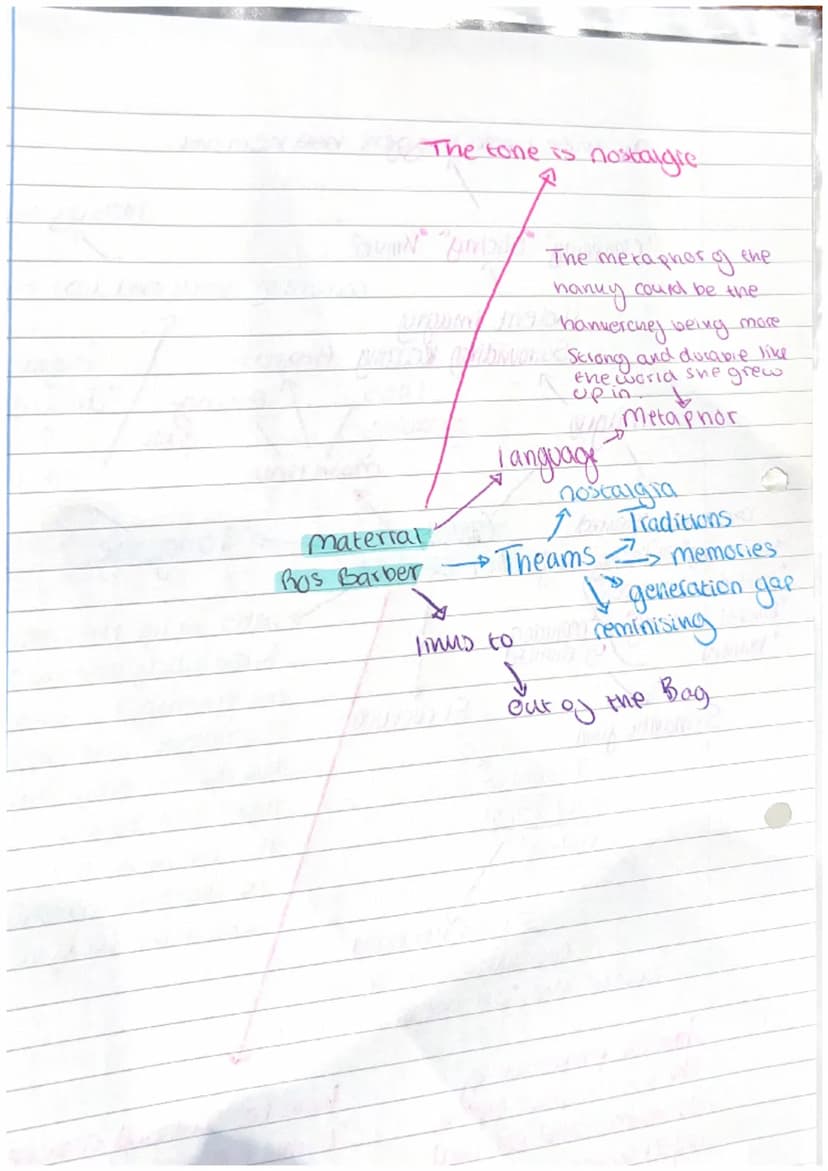 The tone is nostalgic
The metaphor of the
hanky could be the
hankerchey being more
Strong and durable like
the world she grew
up in.
Metaphor
language
nostalgia
Traditions
Material
Ros Barber
Theams
memories
generation gap
reminising
links to
out of the Bag